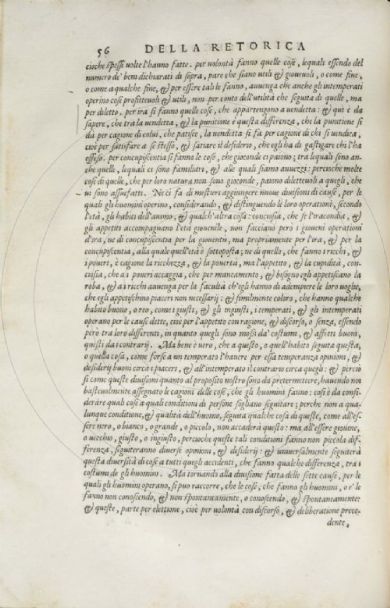 56 DELLA RETORICA
cioche spesse volte l'hanno fatte. per volontà fanno quelle cose, lequali essendo del
numero de' beni dichiarati di sopra, pare che siano utili & gioueuoli, o come fine,
o come a qualche fine, & per essere tali le fanno, auuenga che anche gli intemperati
operino cose profitteuoli & utili, non per conto dell'utilità che seguita di quelle, ma
per diletto. per ira si fanno quelle cose, che appartengono a vendetta: & qui è da
sapere, che tra la vendetta, & la punitione è questa differenza, che la punitione si
dà per cagione di colui, che patisce, la vendetta si fa per cagione di chi si vendica,
cioè per satisfare a se stesso, & satiare il desiderio, che egli ha di gastigare chi l'ha
offeso. per concupiscentia si fanno le cose, che gioconde ci paiono; tra lequali sono an-
che quelle, lequali ci sono famigliari, & alle quali siamo auuezzi: percioche molte
cose di quelle, che per lor natura non sono gioconde, paiono diletteuoli a quegli, che
ui sono assuefatti. Ne ci fa di mestiere aggiungere nuoue diuisioni di cause, per le
quali gli huomini operino, considerando, & distinguendo le loro operationi, secondo
l'età, gli habiti dell'animo, & qualch'altra cosa: conciosia, che se l'iracondia, &
gli appetiti accompagnano l'età giouenile, non facciano però i giouani operationi
d'ira, ne di concupiscentia per la giouentù, ma propriamente per l'ira, & per la
concupiscentia, alla quale quell'età è sottoposta; ne da quello, che fanno i ricchi, &
i poueri, è cagione la ricchezza, & la pouertà, ma l'appetito, & la cupidità, con-
ciosia, che a i poueri accaggia, che per mancamento, & bisogno egli appetiscano la
roba, & a i ricchi auuenga per la facultà ch'egli hanno di adempiere le loro uoglie,
che egli appetischino piaceri non necessarij: & similmente coloro, che hanno qualche
habito buono, o reo, come i giusti, & gli ingiusti, i temperati, & gli intemperati
operano per le cause dette, cioè per l'appetito con ragione, & discorso, o senza, essendo
però tra loro differenti, in quanto quegli sono mossi da' costumi, & affetti buoni,
questi da i contrarij. Ma bene è uero, che a questo, a quell'habito seguita questa,
o quella cosa, come forse a un temperato l'hauere per essa temperanza opinioni, &
desiderij buoni circa i piaceri, & all'intemperato il contrario circa quegli: & perciò
sì come queste diuisioni quanto al proposito nostro sono da pretermittere, hauendo noi
basteuolmente assegnato le cagioni delle cose, che gli huomini fanno: così è da consi-
derare quali cose a quali conditioni di persone sogliano seguitare; perche non a qua-
lunque conditione, & qualità dell'huomo, seguita qualche cosa di queste, come all'es-
sere nero, o bianco, o grande, o piccolo, non accaderà questo: ma all'essere giouine,
o uecchio, giusto, o ingiusto, percioche queste tali conditioni fanno non piccola dif-
ferenza, seguiteranno diuerse opinioni, & desiderij: & uniuersalmente seguiterà
questa diuersità di cose a tutti quegli accidenti, che fanno qualche differenza, tra i
costumi de gli huomini. Ma tornando alla diuisione fatta delle sette cause, per le
quali gli huomini operano, si può raccorre, che le cose, che fanno gli huomini, o e' le
fanno non conoscendo, & non spontaneamente, o conoscendo, & spontaneamente:
& queste, parte per elettione, cioè per volontà con discorso, & deliberatione prece-
dente,